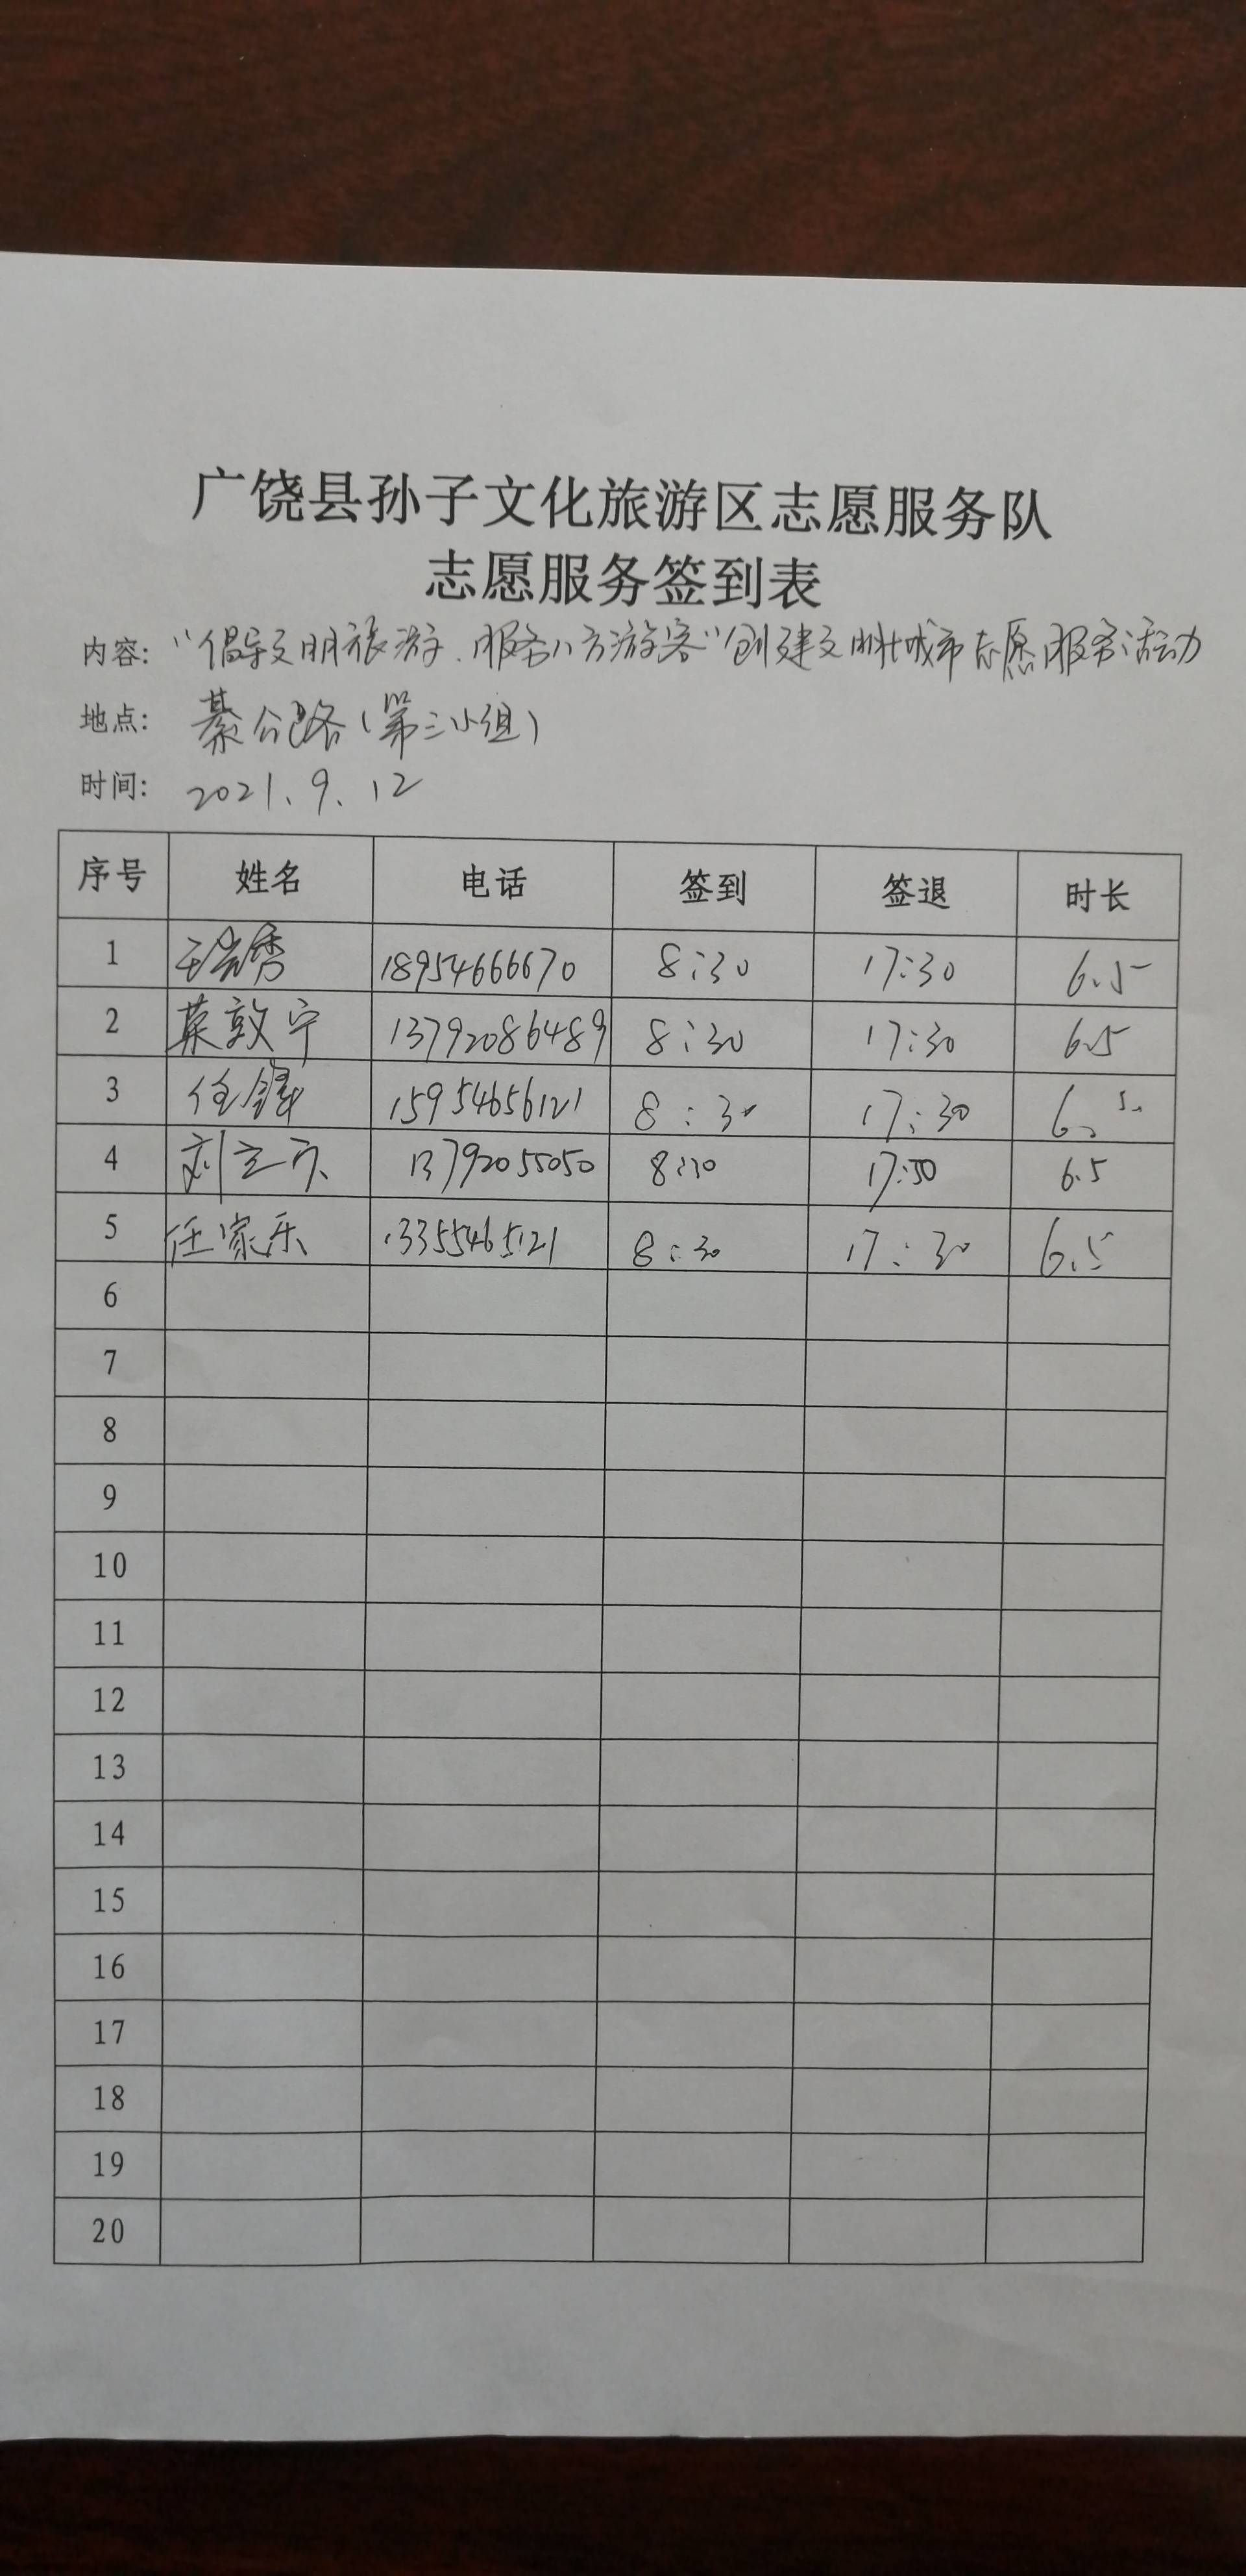 广饶县孙子文化旅游区志愿服务队
志愿服务签到表
内容: “倡导文明旅游.服务八方游客”创建文明城市志愿服务活动
地点: 綦公路(第三小组)
时间: 2021.9.12
序号 姓名 电话 签到 签退 时长
1 18954666670 8:30 17:30 6.5
2 敦宁 13792086489 8:30 17:30 6.5
3 任 15954656121 8:30 17:30 6.5
4 刘 13792055050 8:30 17:30 6.5
5 任家乐 13355465121 8:30 17:30 6.5
6
7
8
9
10
11
12
13
14
15
16
17
18
19
20